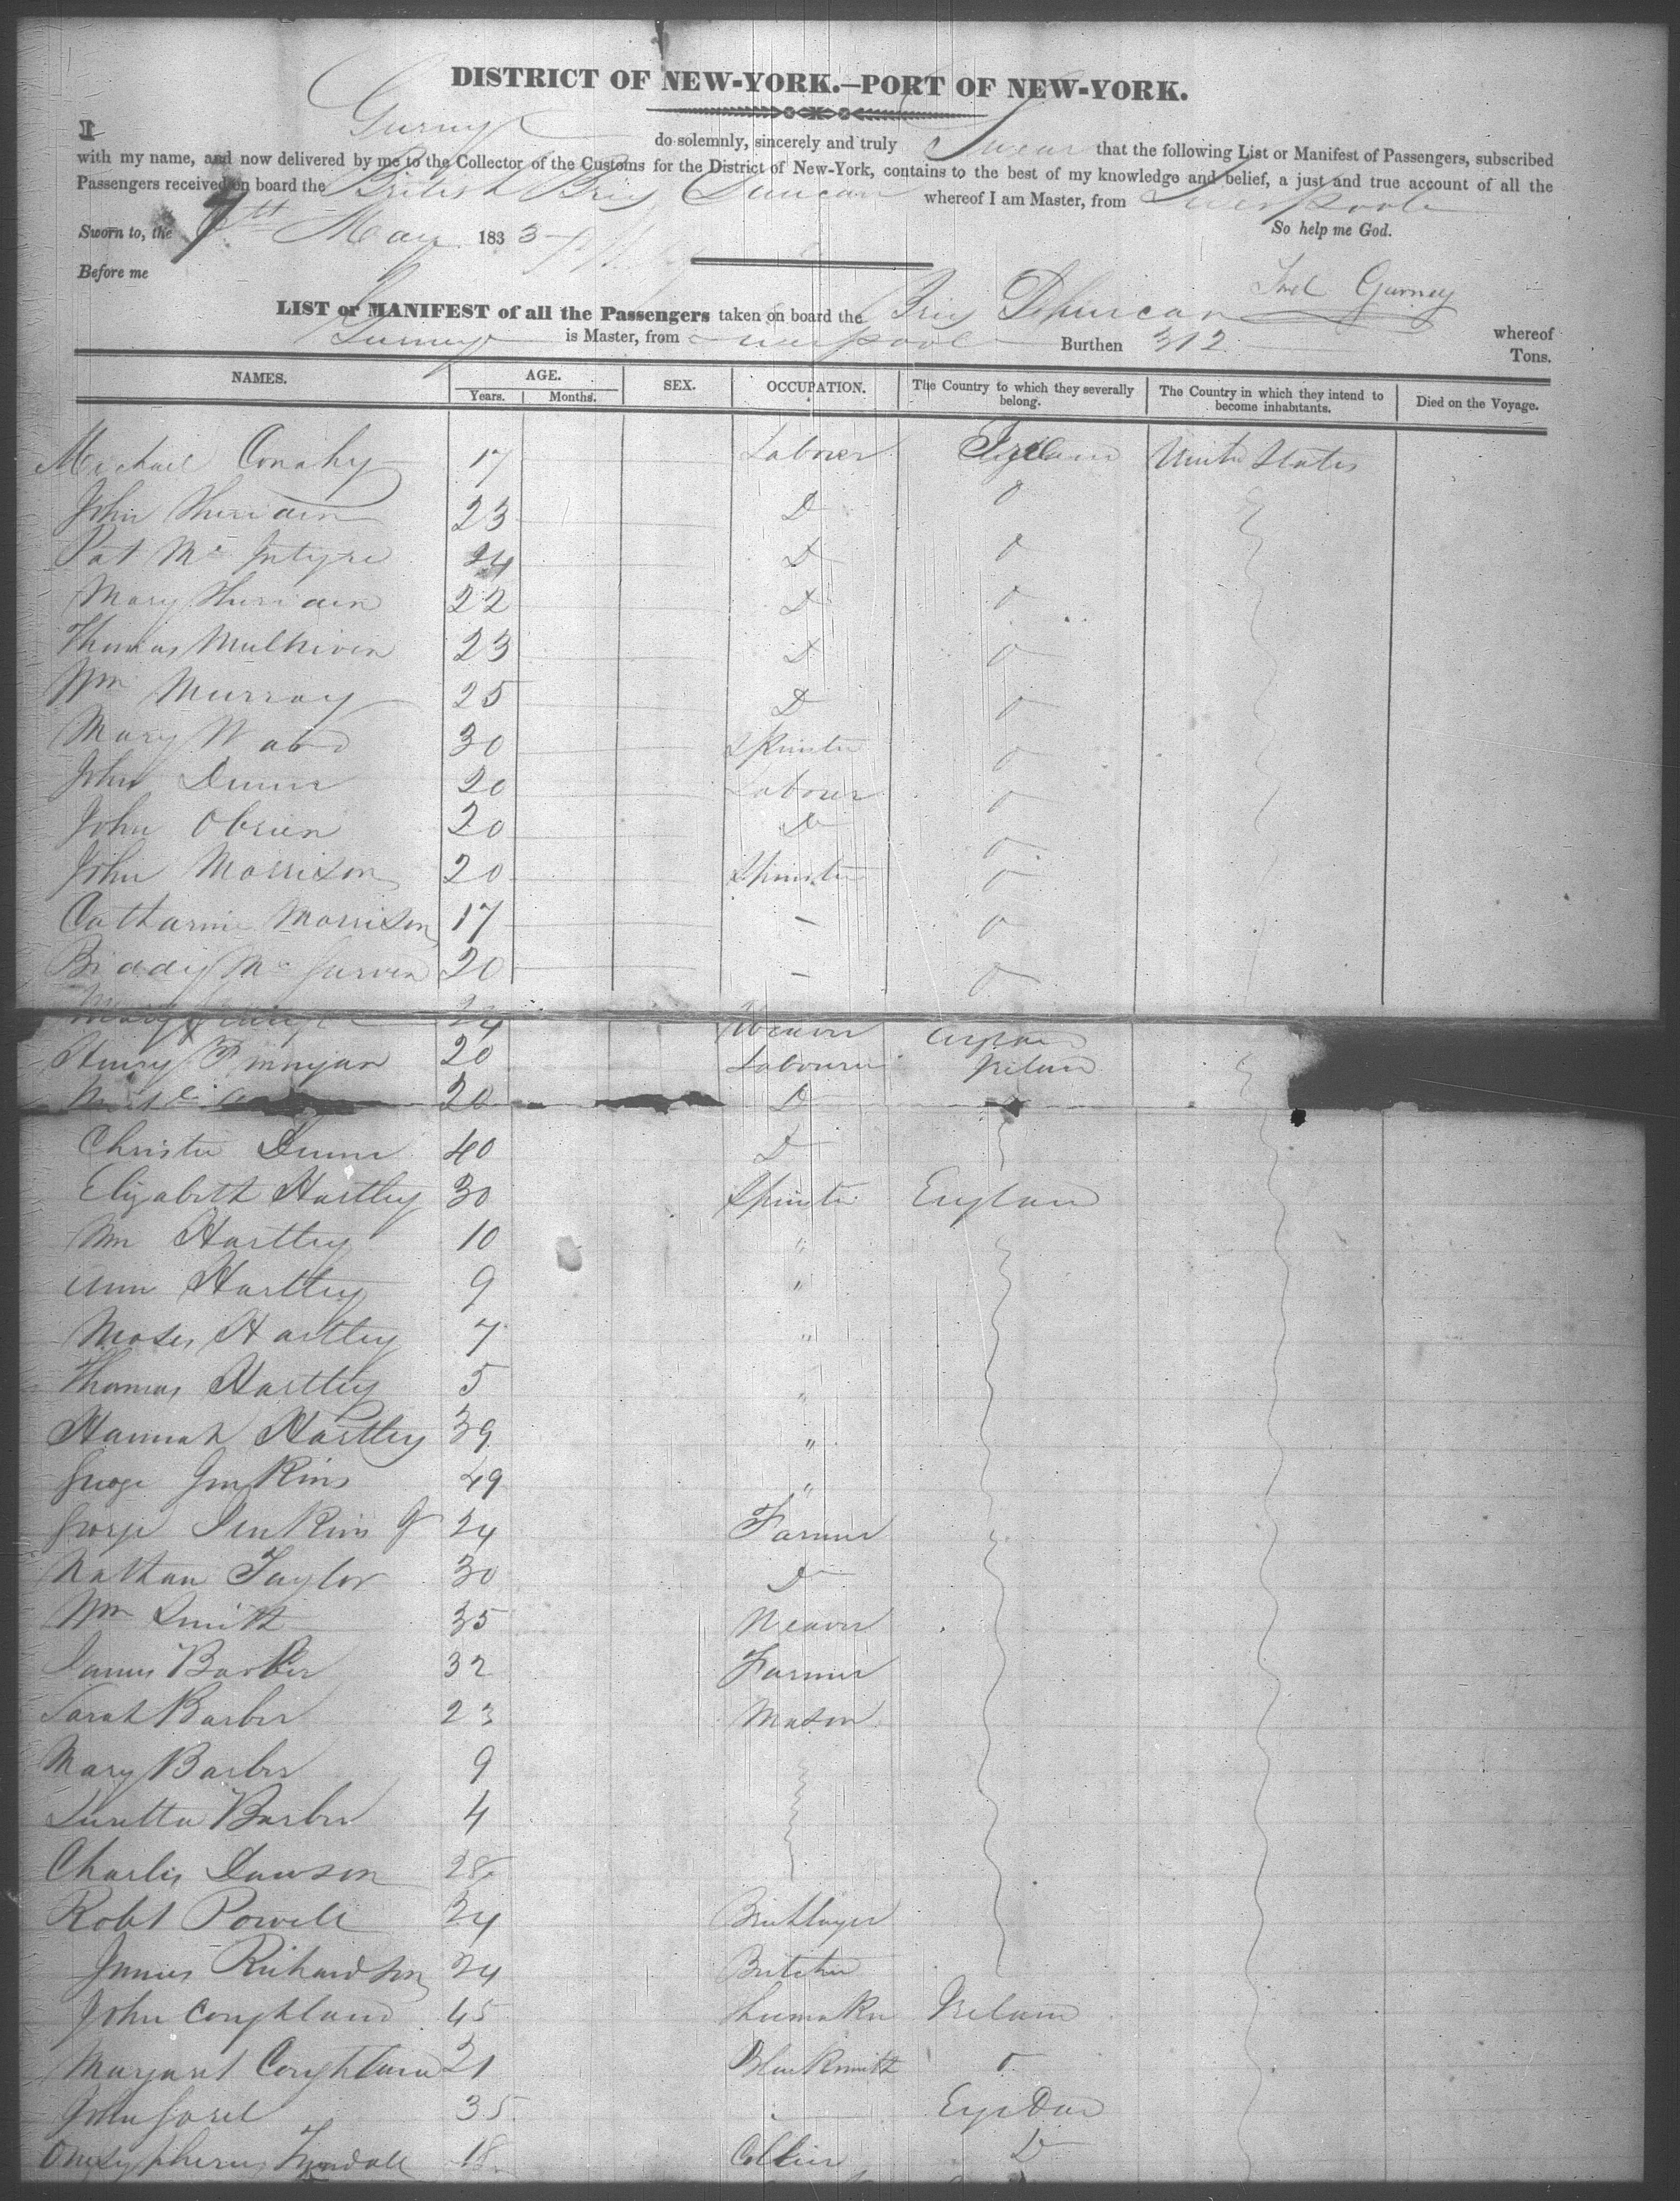 DISTRICT OF NEW-YORK.—PORT OF NEW-YORK.
I Gurney do solemnly, sincerely and truly Swear that the following List or Manifest of Passengers, subscribed
with my name, and now delivered by me to the Collector of the Customs for the District of New-York, contains to the best of my knowledge and belief, a just and true account of all the
Passengers received on board the British Brig Duncan whereof I am Master, from Liverpoole
Sworn to, the 7th May 1833 So help me God.
Before me
Gurney
LIST or MANIFEST of all the Passengers taken on board the Brig Duncan whereof
Gurney is Master, from Liverpoole Burthen 312 Tons.
NAMES. AGE. SEX. OCCUPATION. The Country to which they severally belong. The Country in which they intend to become inhabitants. Died on the Voyage.
Years. Months.
Michael Conahy 17 Laborer United States
John Sheridan 23 D
Pat Mc Intyre 24 D
Mary Sheridan 22 D
Thomas 23 D
Wm Murray 25 D
Mary Ward 30 Spinster
John Dunn 20 Laborer
John Obrien 20 D
John Morrison 20 Spinster
Catharine Morrison 17 -
Biddy Mc 20 -
Mary 24 Weaver
Henry Finnigan 20 Labourer Ireland
20 D
Christer Dunn 40 D
Elizabeth Hartley 30 Spinster England
Wm Hartley 10 "
Ann Hartley 9 "
Moses Hartley 7 "
Thomas Hartley 5 "
Hannah Hartley 39 "
George Jenkins 49 "
George Jenkins Jr 24 Farmer
Nathan Taylor 30 D
Wm Smith 35 Weaver
James Barber 32 Farmer
Sarah Barber 23 Mason
Mary Barber 9
Barber 4
Charles Dawson 28
Robt Powell 24 Bricklayer
James Richardson 24 Butcher
John Coughland 45 Shumaker Ireland
Margaret Coughland 21 Blacksmith
John 35 England
Onesypherus Tyndall 18 Collier D